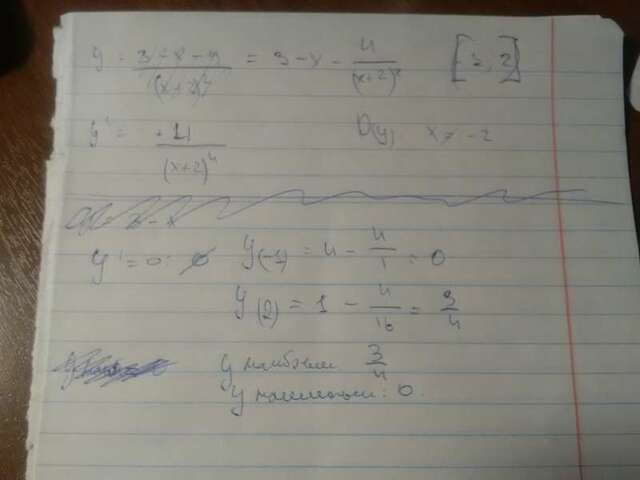 y = 3 - x - 4 / (x+2)² = 3 - x - 4 / (x+2)² [-1, 2]
y' = -4 / (x+2)⁴ D(y) x ≠ -2
y' = 0: ∅ y(-1) = 4 - 4/1 = 0
y(2) = 1 - 4/16 = 3/4
y наибольш 3/4
y наименьш: 0.